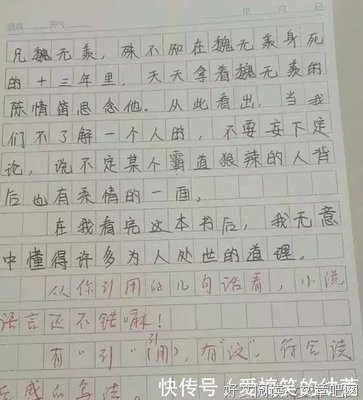 年 月 日
兄魏无羡，殊不知在魏无羡身死
的十三年里，天天拿着魏无羡的
陈情笛思念他。从此看出，当我
们不了解一个人时，不要妄下定
论，说不定某个霸道狠辣的人背
后也有柔情的一面。
在我看完这本书后，我无意
中懂得许多为人处世的道理。
从你引用的几句话看，小说
语言还不错嘛！
有“引”（引用），有“议”，符合读
后感的写法。
快传号/爱搞笑的幼蓉